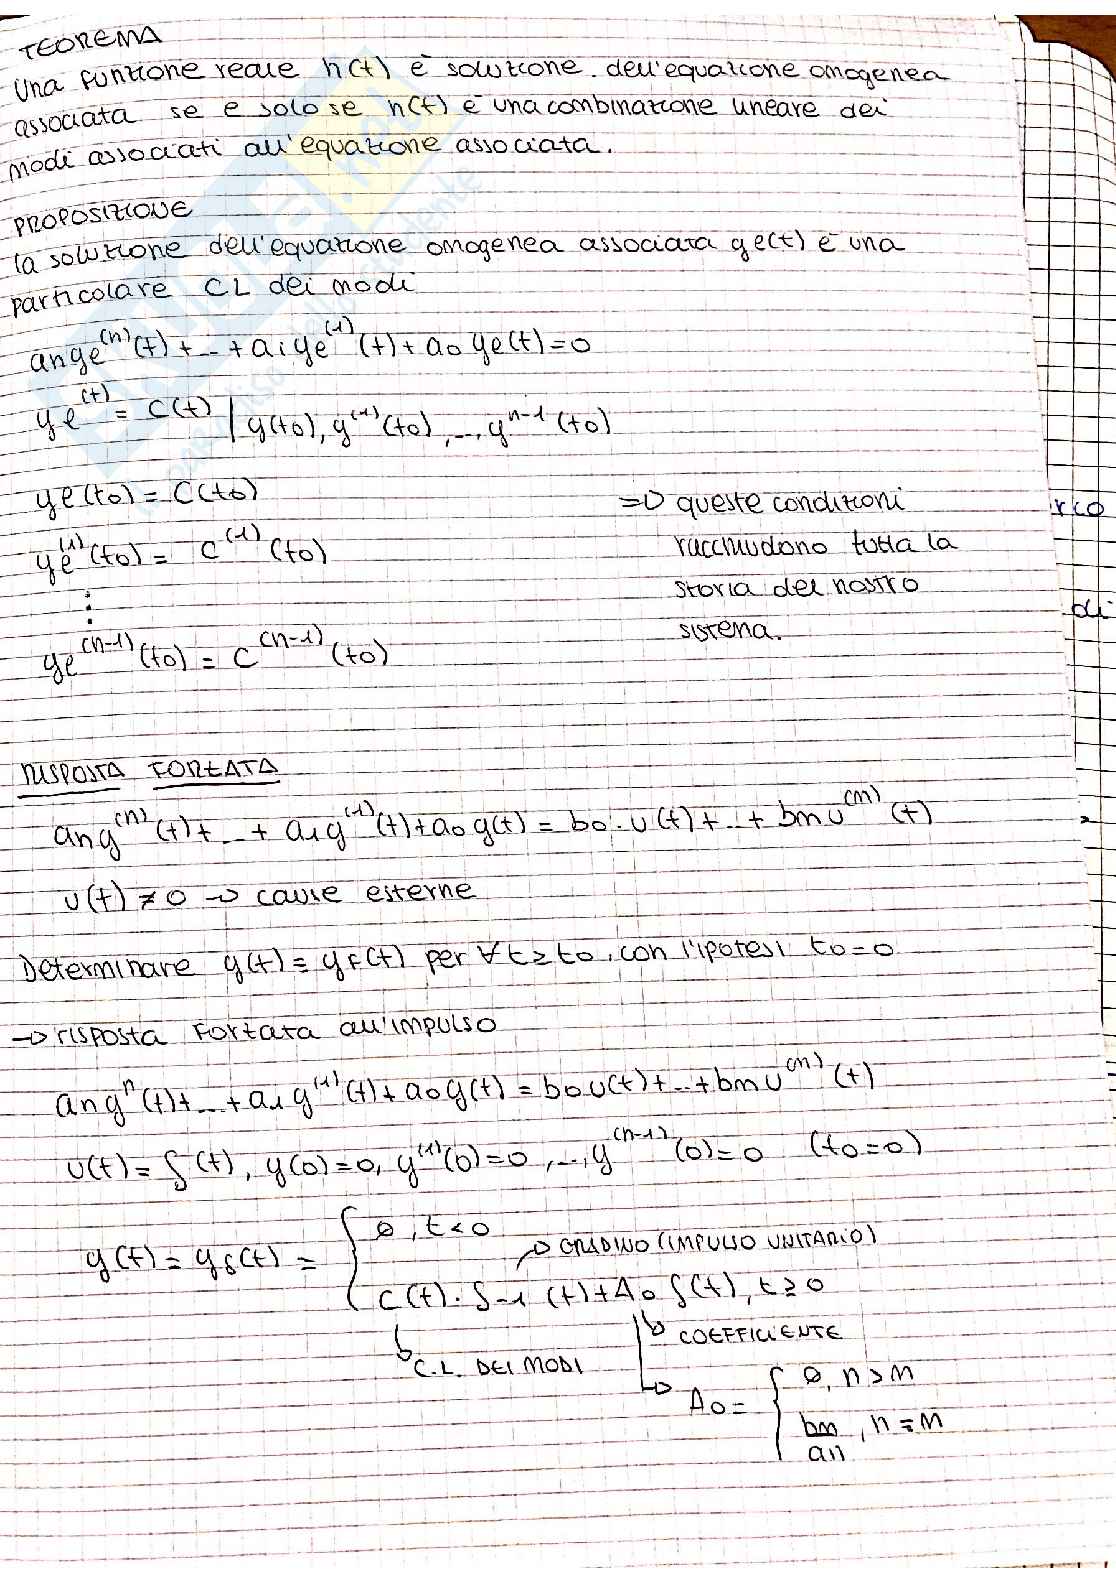 TEOREMA
Una funzione reale h(t) è soluzione dell'equazione omogenea
associata se e solo se h(t) è una combinazione lineare dei
modi associati all'equazione associata.
PROPOSIZIONE
la soluzione dell'equazione omogenea associata ye(t) è una
particolare CL dei modi
an ye^(n)(t) + ... + a1 ye^(1)(t) + a0 ye(t) = 0
ye^(t) = C(t) | y(t0), y^(1)(t0), ..., y^n-1(t0)
ye(t0) = C(t0)
=> queste condizioni
ye^(1)(t0) = C^(1)(t0)
racchiudono tutta la
storia del nostro
sistema.
ye^(n-1)(t0) = C^(n-1)(t0)
rco
di
RISPOSTA FORZATA
an y^(n)(t) + ... + a1 y^(1)(t) + a0 y(t) = b0 · u(t) + ... + bm u^(m)(t)
u(t) ≠ 0 → cause esterne
Determinare y(t) = yf(t) per ∀ t ≥ t0, con l'ipotesi t0 = 0
→ risposta forzata all'impulso
an y^n(t) + ... + a1 y^(1)(t) + a0 y(t) = b0 u(t) + ... + bm u^(m)(t)
u(t) = δ(t), y(0) = 0, y^(1)(0) = 0, ..., y^(n-1)(0) = 0 (t0 = 0)
y(t) = yδ(t) = { 0, t < 0
→ GRADINO (IMPULSO UNITARIO)
C(t) · δ-1(t) + A0 δ(t), t ≥ 0
↳ COEFFICIENTE
↳ C.L. DEI MODI
↳ A0 = { 0, n > m
bm/an, n = m